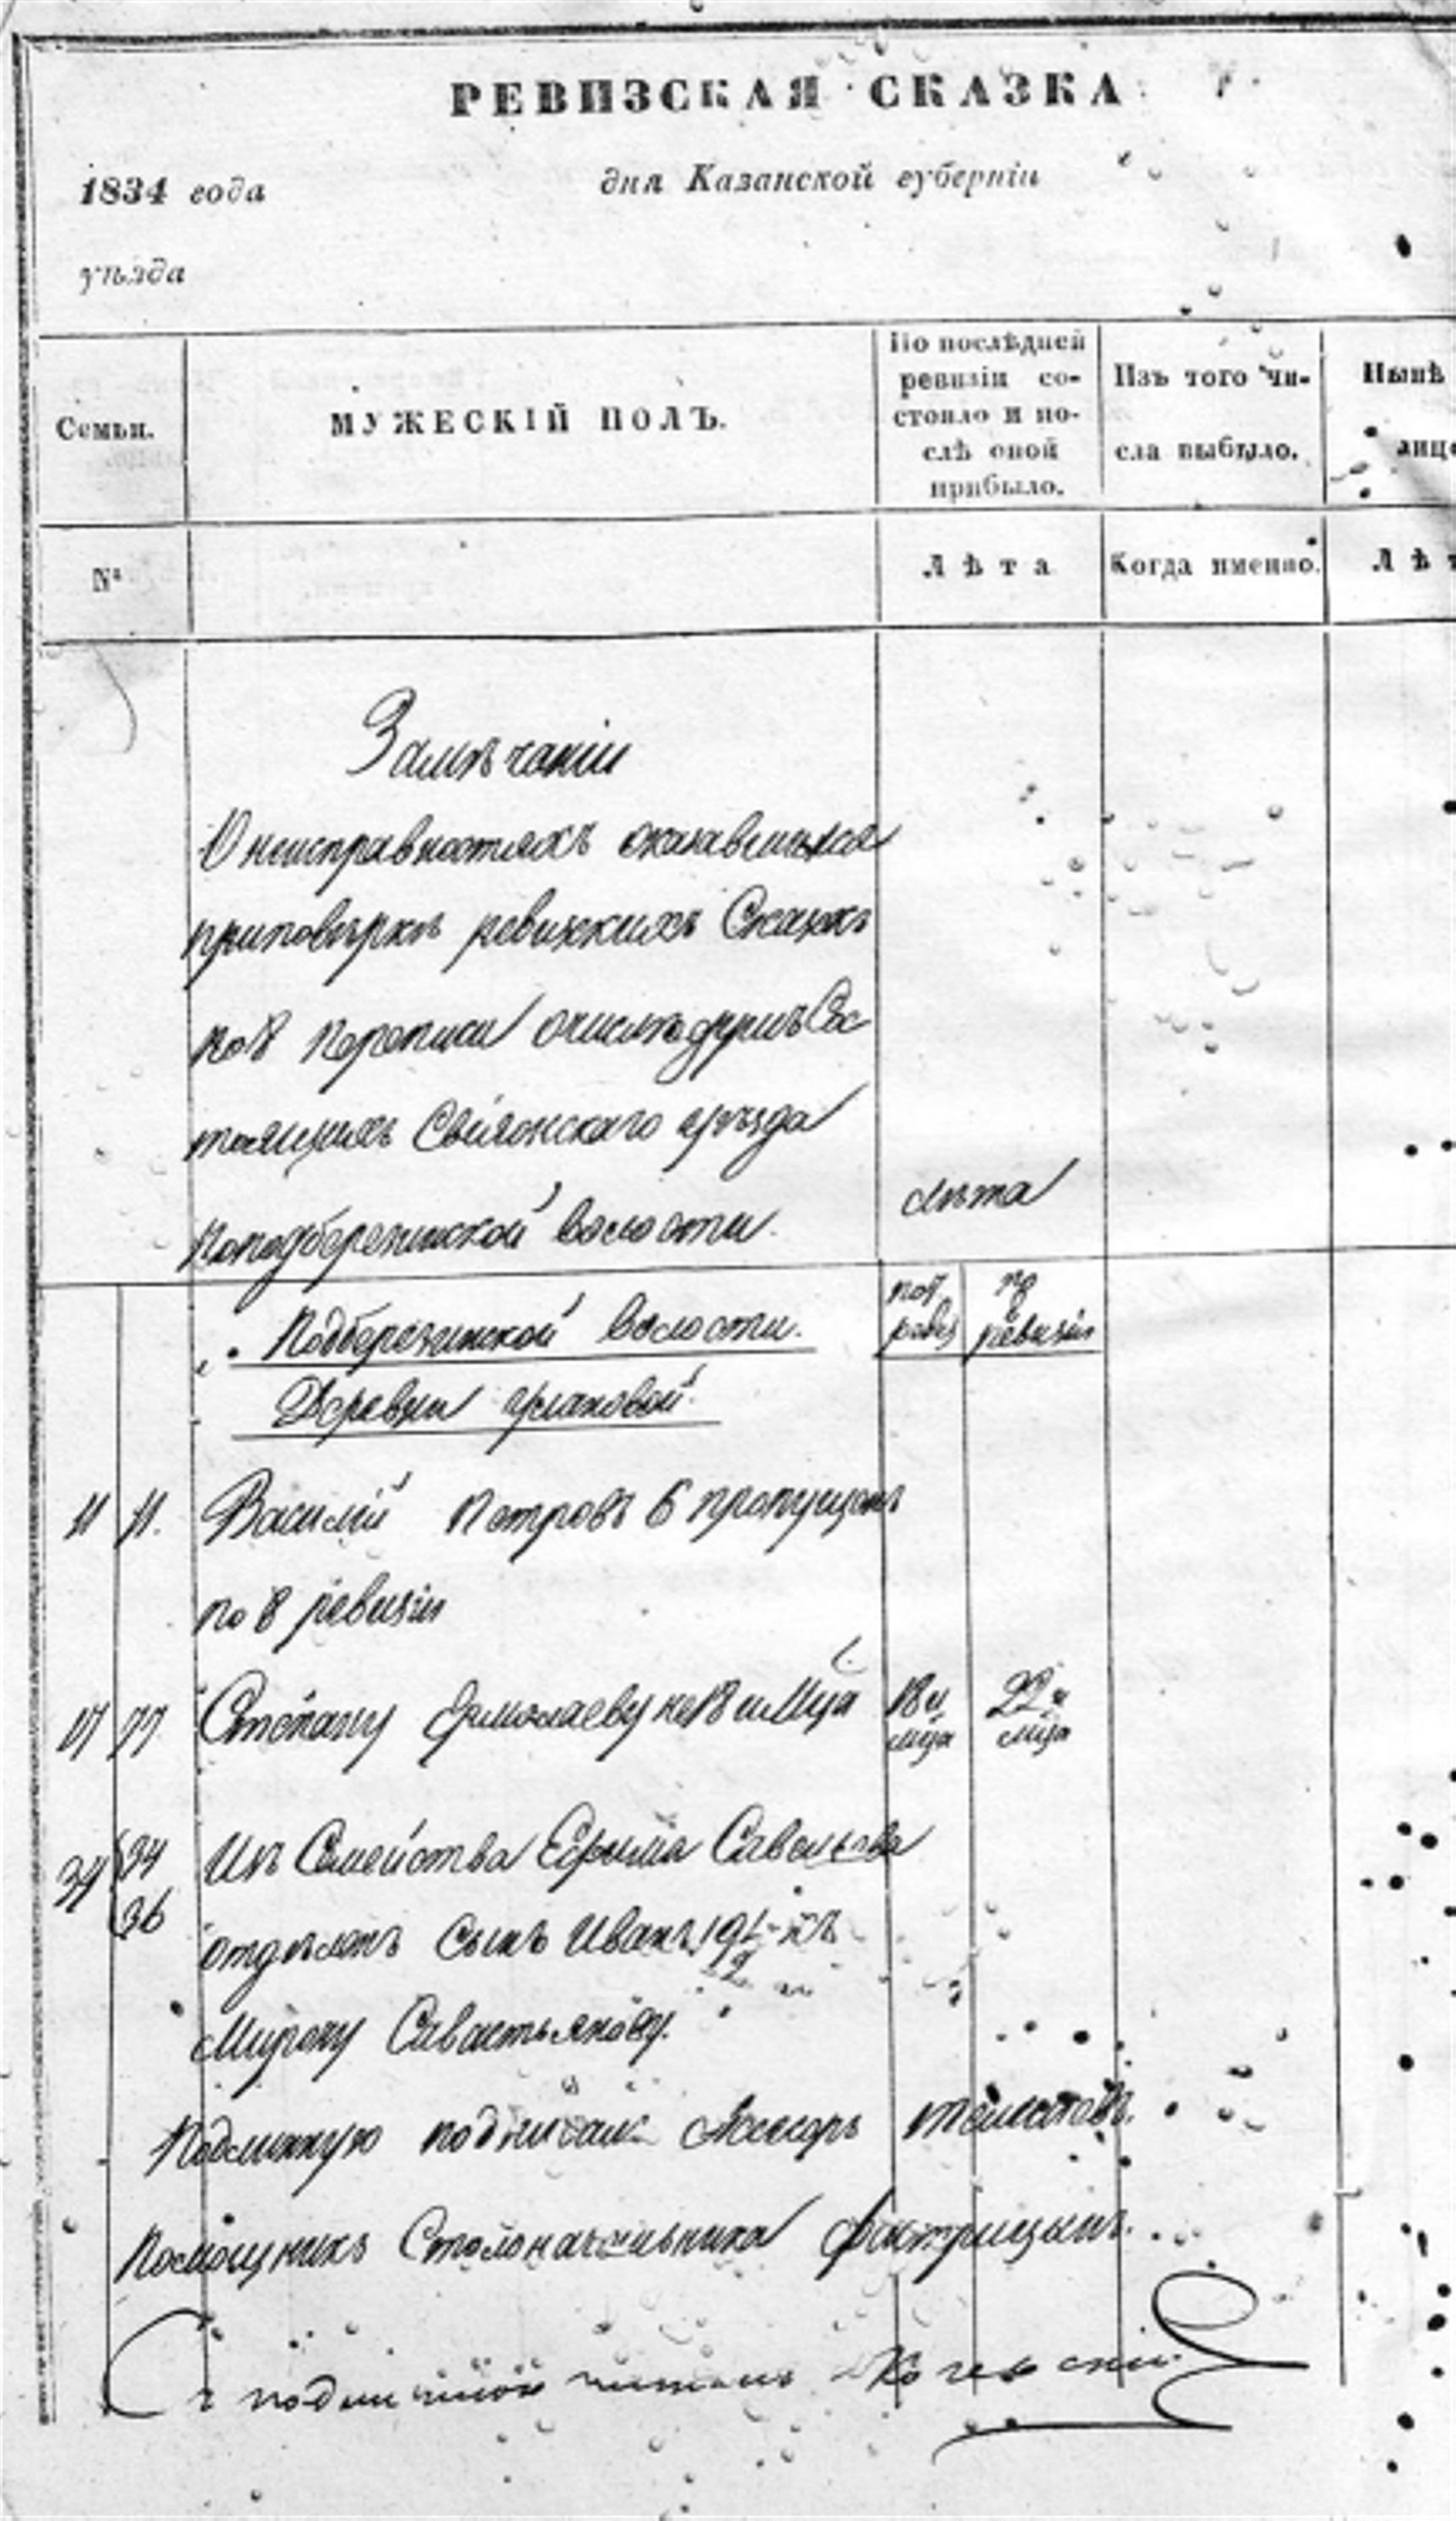 РЕВИЗСКАЯ СКАЗКА
1834 года дня Казанской губерніи
уѣзда
Семьи. МУЖЕСКІЙ ПОЛЪ. По послѣдней ревизіи со- стояло и по- слѣ оной прибыло. Изъ того чи- сла выбыло. Нынѣ лице
№ Лѣта Когда именно. Лѣт
Замѣчаніи
О неисправностяхъ оказавшихся
приповѣркѣ ревизскихъ Сказкъ
по 8 Переписи очислѣ душъ Сос
тоящихъ Свіяжскаго уѣзда
Поподберезинской волости. лѣта
Подберезинской волости. по 7 ревиз по 8 ревизіи
Деревни Улановой.
11 11. Василій Петровъ 6 пропущенъ
по 8 ревизіи
17 17 Степану Ермолаеву не 18 и Мца 18 и мца 22 и мца
34 34 Изъ Семейства Ефима Савельева
36 отдѣленъ сынъ Иванъ
Мирону Савастьянову.
Подлинную подписалъ Асессоръ
Помощникъ Столоначальника
Съ подлинной читалъ